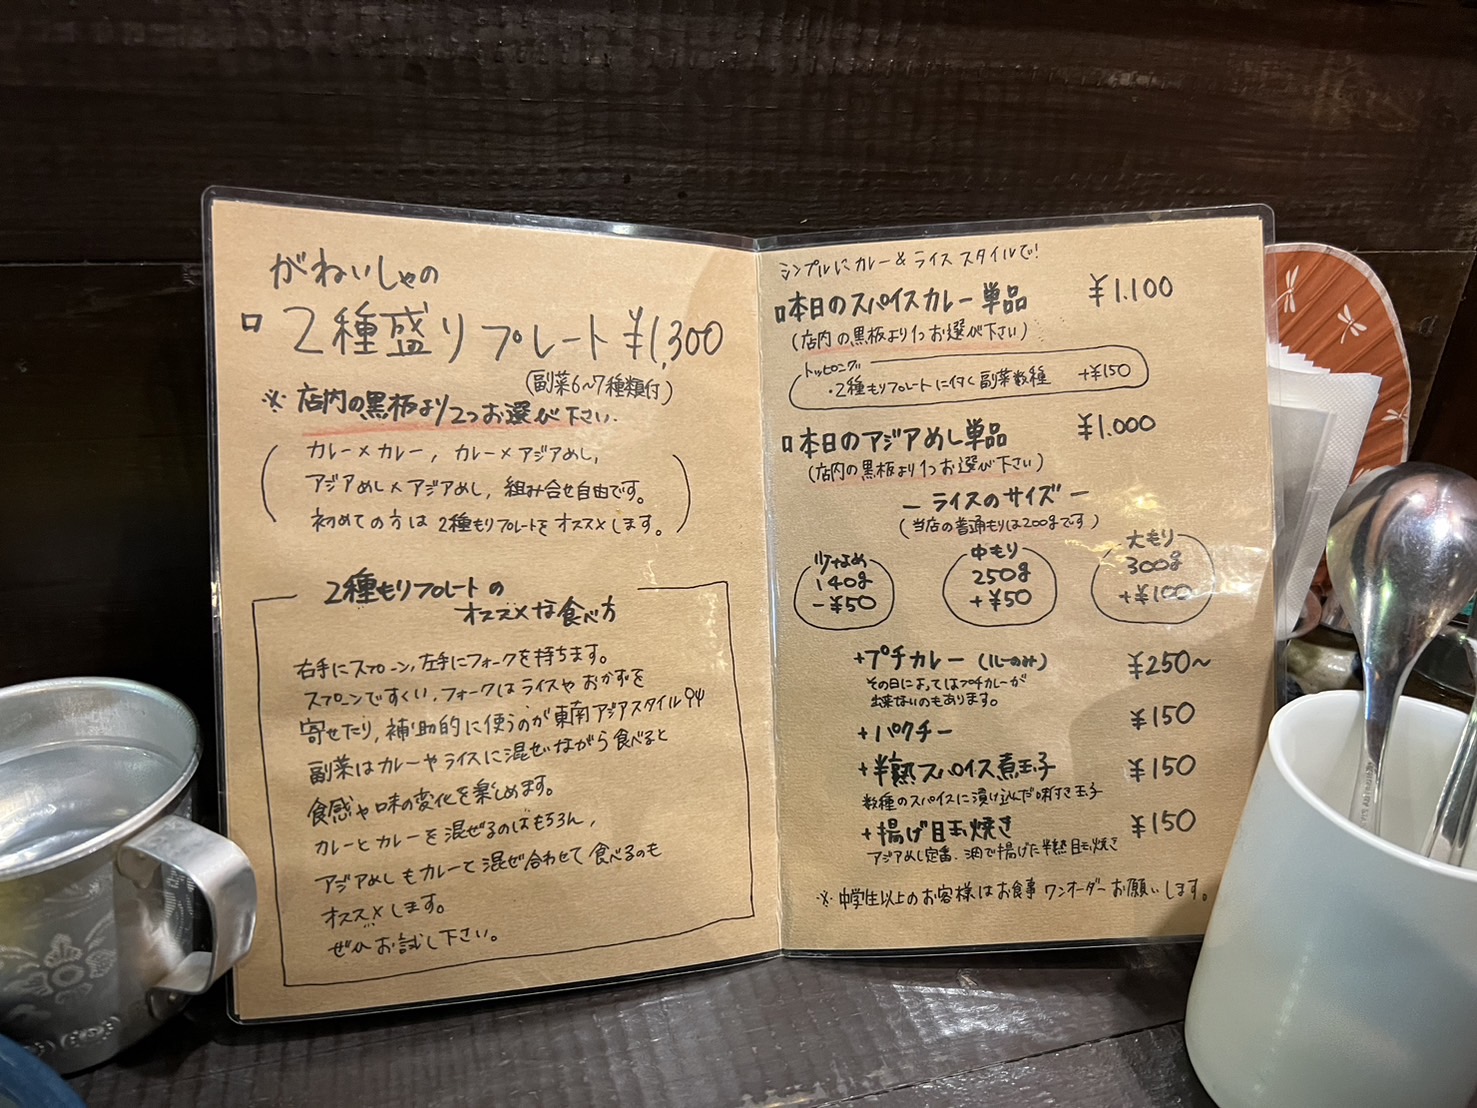 がねいしゃの
□ 2種盛りプレート ¥1,300
(副菜6〜7種類付)
※店内の黒板より2つお選び下さい.
カレー×カレー, カレー×アジアめし,
アジアめし×アジアめし, 組み合せ自由です。
初めての方は 2種もりプレートをオススメします。
2種もりプレートの
オススメな食べ方
右手にスプーン, 左手にフォークを持ちます。
スプーンですくい, フォークはライスやおかずを
寄せたり, 補助的に使うのが東南アジアスタイル
副菜はカレーやライスに混ぜながら食べると
食感や味の変化を楽しめます。
カレーとカレーを混ぜるのはもちろん,
アジアめしもカレーと混ぜ合わせて食べるのも
オススメします。
ぜひお試し下さい。
シンプルにカレー&ライススタイルで!
□本日のスパイスカレー単品 ¥1.100
(店内の黒板より1つお選び下さい)
トッピング
・2種もりプレートに付く副菜数種 +¥150
□本日のアジアめし単品 ¥1.000
(店内の黒板より1つお選び下さい)
ーライスのサイズー
(当店の普通もりは200gです)
少なめ
140g
-¥50
中もり
250g
+¥50
大もり
300g
+¥100
+プチカレー(ルーのみ) ¥250~
その日によってはプチカレーが
出来ないのもあります。
+パクチー ¥150
+半熟スパイス煮玉子 ¥150
数種のスパイスに漬け込んだ味付き玉子
+揚げ目玉焼き ¥150
アジアめし定番. 油で揚げた半熟目玉焼き
※中学生以上のお客様はお食事ワンオーダーお願いします。